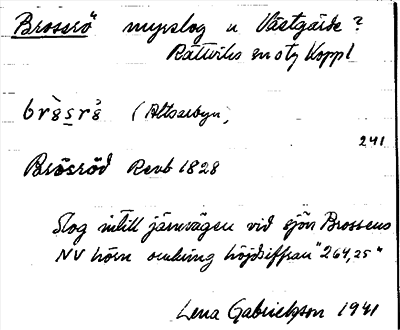 Brossrö" myrslog u Västgärde?
Rättviks sn o tg Koppl
(Altsarbyn,
241
Brösröd Revb 1828
Slog intill järnvägen vid sjön Brossens
NV hörn omkring höjdsiffran "264,25"
Lena Gabrielsson 1941